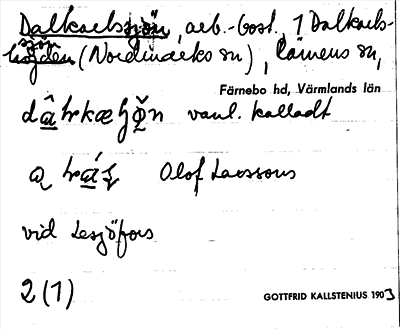 Dalkarlssjön, arb.-bost. 1 Dalkarls-
sjön
höjden (Nordmarks sn), Rämens sn,
Färnebo hd, Värmlands län
vanl. kalladt
Olof Larssons
vid Lesjöfors
2 (1)
GOTTFRID KALLSTENIUS 1903